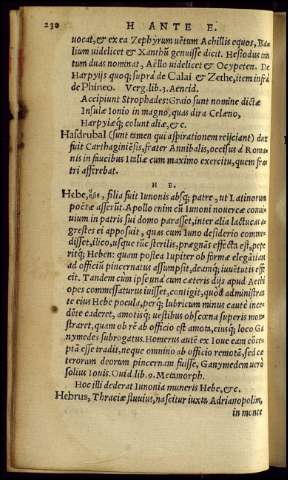 230 H ANTE E.
uocat, & ex ea Zephyrum uẽtum Achillis equos, Ba
lium uidelicet & Xanthũ genuisse dicit. Hesiodus tan
tum duas nominat, Aëllo uidelicet & Ocypeten. De
Harpyijs quoq; supra de Calai & Zethe, item infrà
de Phineo. Verg. lib. 3. Aeneid.
Accipiunt Strophades: Graio stant nomine dictæ
Insulæ Ionio in magno, quas dira Celæno,
Harpyiæq; colunt aliæ, &c.
Hasdrubal (sunt tamen qui aspirationem reijciant) dux
fuit Carthaginẽsis, frater Annibalis, occisus à Roma
nis in faucibus Italiæ cum maximo exercitu, quem fra
tri afferebat.
H E.
Hebe, ἥβη, filia fuit Iunonis absq; patre, ut Latinorum
poëtæ asserũt. Apollo enim cũ Iunoni nouercæ conui
uium in patris sui domo parasset, inter alia lactucas a=
grestes ei apposuit, quas cum Iuno desiderio comme=
disset, ilico, usque tũc sterilis, prægnãs effecta est, pepe
ritq; Heben: quam postea Iupiter ob formæ elegãtiam
ad officiũ pincernatus assumpsit, deamq; iuuẽtutis effe
cit. Tandem cum ipse unà cum cæteris dijs apud Aethi
opes commessaturus iuisset, contigit, quòd administrã
te eius Hebe pocula, perq; lubricum minus cautè ince=
dẽte caderet, amotisq; uestibus obscœna superis mon
straret, quam ob rẽ ab officio est amota, eiusq; loco Ga
nymedes subrogatus. Homerus autẽ ex Ioue eam cõce
ptã esse tradit, neque omnino ab officio remotã, sed cæ
terorum deorum pincernam fuisse, Ganymedem uerò
solius Iouis. Ouid. lib. 9. Metamorph.
Hoc illi dederat Iunonia muneris Hebe, &c.
Hebrus, Thraciæ fluuius, nascitur iuxta Adrianopolim,
in monte